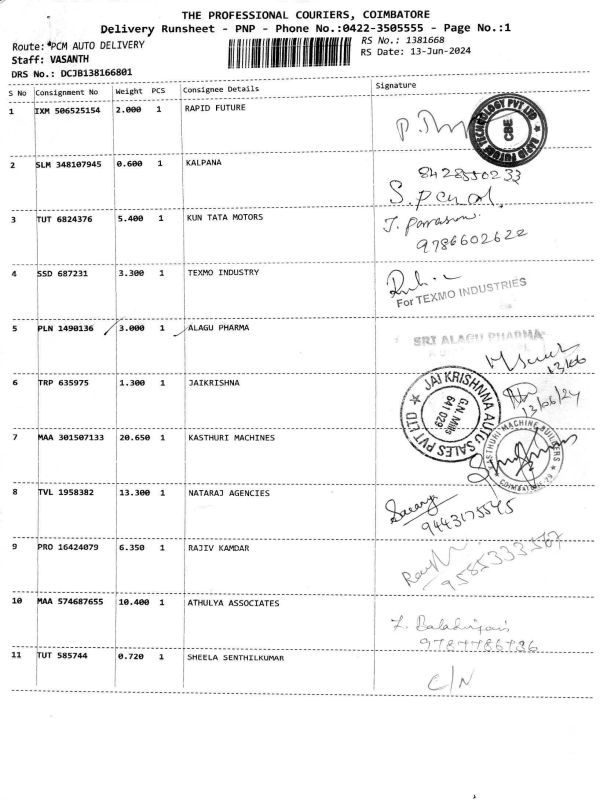 THE PROFESSIONAL COURIERS, COIMBATORE
Delivery Runsheet - PNP - Phone No.:0422-3505555 - Page No.:1
Route: *PCM AUTO DELIVERY
RS No.: 1381668
Staff: VASANTH
RS Date: 13-Jun-2024
DRS No.: DCJB138166801
S No Consignment No Weight PCS Consignee Details Signature
1 IXM 506525154 2.000 1 RAPID FUTURE
RAPID FUTURE TECHNOLOGY PVT LTD
CBE
2 SLM 348107945 0.600 1 KALPANA
8428550233
3 TUT 6824376 5.400 1 KUN TATA MOTORS
9786602622
4 SSD 687231 3.300 1 TEXMO INDUSTRY
For TEXMO INDUSTRIES
5 PLN 1490136 3.000 1 ALAGU PHARMA
SRI ALAGU PHARMA
13/06
6 TRP 635975 1.300 1 JAIKRISHNA
JAI KRISHNNA AUTO SALES PVT LTD
G.N. Mills
641 029
13/06/24
7 MAA 301507133 20.650 1 KASTHURI MACHINES
KASTHURI MACHINE BUILDERS
COIMBATORE-29
8 TVL 1958382 13.300 1 NATARAJ AGENCIES
9443175545
9 PRO 16424079 6.350 1 RAJIV KAMDAR
9585333567
10 MAA 574687655 10.400 1 ATHULYA ASSOCIATES
9787786736
11 TUT 585744 0.720 1 SHEELA SENTHILKUMAR
C/N